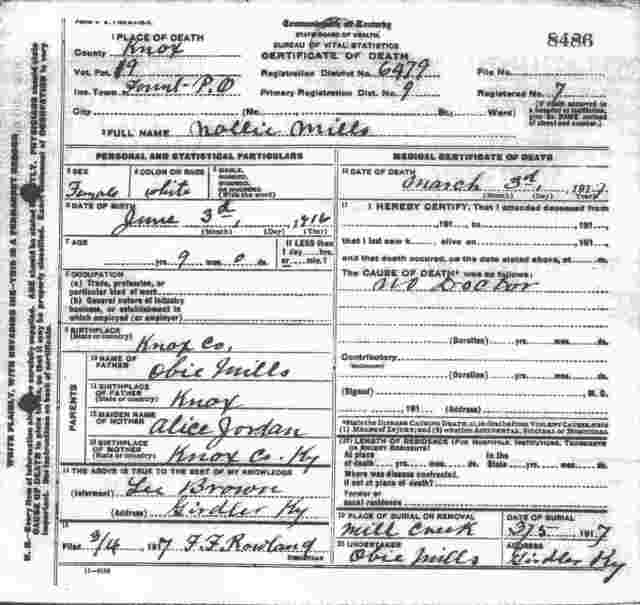 1 PLACE OF DEATH
County Knox
Vot. Pct. #9
Inc. Town Fount - P.O
City (No. St., Ward)
Commonwealth of Kentucky
STATE BOARD OF HEALTH
BUREAU OF VITAL STATISTICS
CERTIFICATE OF DEATH
Registration District No. 6479
Primary Registration Dist. No. 9
8486
File No.
Registered No. 7
(If death occurred in a hospital or institution, give its NAME instead of street and number.)
2 FULL NAME Nollie Mills
PERSONAL AND STATISTICAL PARTICULARS
3 SEX
Female
4 COLOR OR RACE
white
5 SINGLE, MARRIED, WIDOWED, OR DIVORCED
(Write the word)
6 DATE OF BIRTH
June 3d, 1916
(Month) (Day) (Year)
7 AGE
yrs. 9 mos. 0 ds.
If LESS than
1 day hrs.
or min.?
8 OCCUPATION
(a) Trade, profession, or
particular kind of work
(b) General nature of industry
business, or establishment in
which employed (or employer)
9 BIRTHPLACE
(State or country) Knox Co.
PARENTS
10 NAME OF
FATHER Obie Mills
11 BIRTHPLACE
OF FATHER
(State or country) Knox
12 MAIDEN NAME
OF MOTHER Alice Jordan
13 BIRTHPLACE
OF MOTHER
(State or country) Knox Co. Ky
14 THE ABOVE IS TRUE TO THE BEST OF MY KNOWLEDGE
(Informant) Lee Brown
(Address) Girdler Ky
15
Filed 3/4 1917 F. F. Rowland
REGISTRAR
MEDICAL CERTIFICATE OF DEATH
16 DATE OF DEATH
March 3d, 1917
(Month) (Day) (Year)
17 I HEREBY CERTIFY, That I attended deceased from
, 191 , to , 191 ,
that I last saw h alive on , 191 ,
and that death occurred, on the date stated above, at m.
The CAUSE OF DEATH* was as follows:
No Doctor
(Duration) yrs. mos. ds.
Contributory
(Duration) yrs. mos. ds.
(Signed) M. D.
, 191 (Address)
*State the DISEASE CAUSING DEATH, or, in deaths from VIOLENT CAUSES, state
(1) MEANS OF INJURY; and (2) whether ACCIDENTAL, SUICIDAL or HOMICIDAL.
18 LENGTH OF RESIDENCE (FOR HOSPITALS, INSTITUTIONS, TRANSIENTS
OR RECENT RESIDENTS)
At place of death yrs. mos. ds. In the State yrs. mos. ds.
Where was disease contracted,
if not at place of death?
Former or
usual residence
19 PLACE OF BURIAL OR REMOVAL
Mill Creek
DATE OF BURIAL
3/5 1917
20 UNDERTAKER
Obie Mills
ADDRESS
Girdler Ky
11-3184